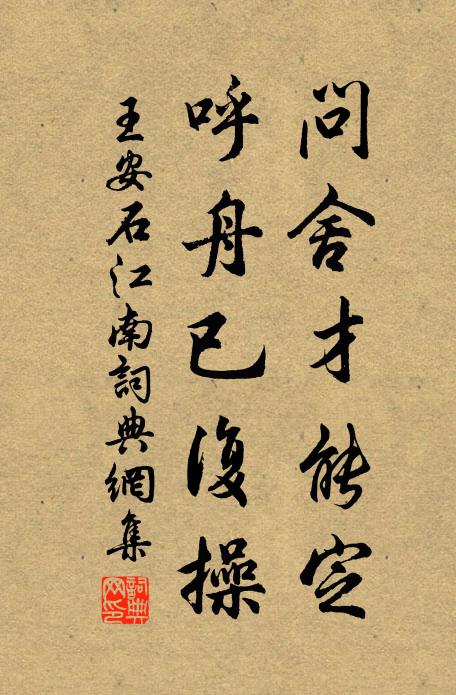 問舍才能定
呼舟已復操
王安石江南詞典網集
詞典網印